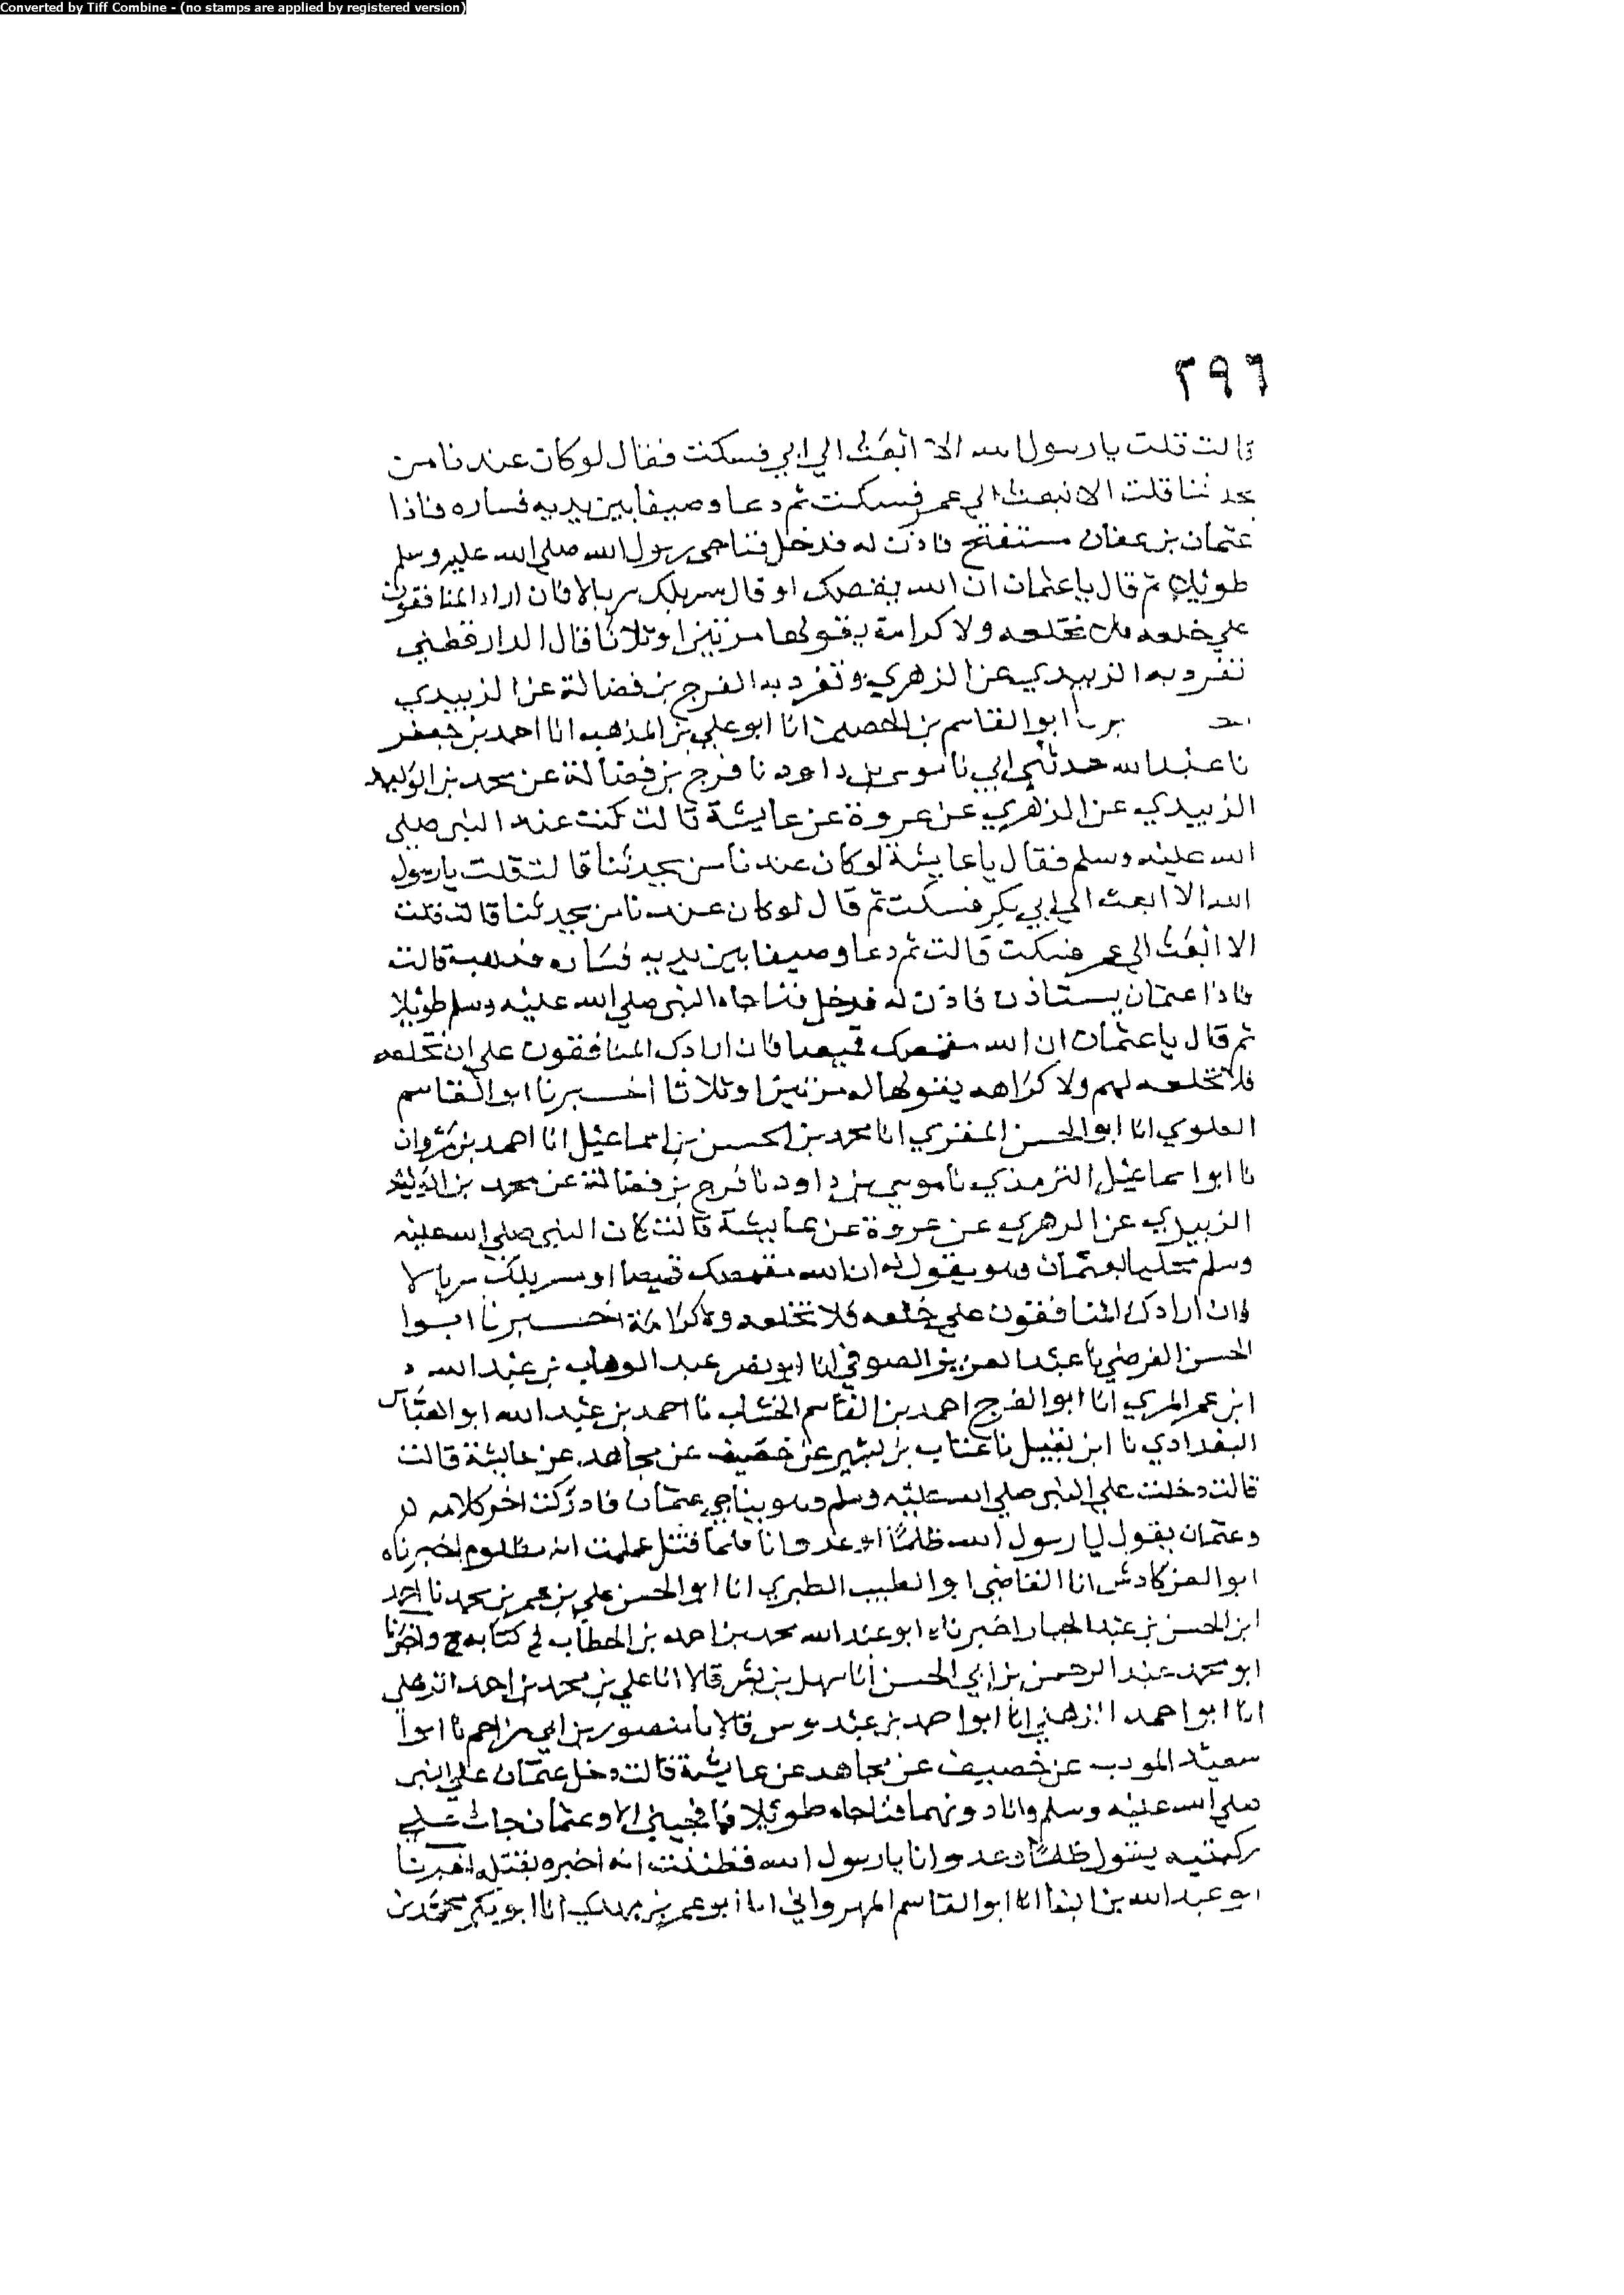 Converted by Tiff Combine - (no stamps are applied by registered version)
٢٩٦
قالت قلت يا رسول الله الا ابعث الي ابي فسكت فقال لو كان عندنا من
يحدثنا قلت الا نبعث الي عمر فسكت ثم دعا وصيفا بين يديه فساره فاذا
عثمان بن عفان مستفتح فاذن له فدخل فناجى رسول الله صلي الله عليه وسلم
طويلا ثم قال يا عثمان ان الله يقمصك او قال سربلك سربالا فان ارادا المنافقون
علي خلعه فلا تخلعه ولا كرامة يقولها مرتين او ثلاثا قال الدارقطني
تفرد به الزبيدي عن الزهري وتفرد به الفرج بن فضالة عن الزبيدي
برنا ابو القاسم بن الحصين انا ابو علي بن المذهب انا احمد بن جعفر
نا عبد الله حدثني ابي نا موسى بن داود نا فرج بن فضالة عن محمد بن الوليد
الزبيدي عن الزهري عن عروة عن عايشة قالت كنت عند النبي صلى
الله عليه وسلم فقال يا عايشة لو كان عندنا من يحدثنا قالت قلت يا رسول
الله الا ابعث الي ابي بكر فسكت ثم قال لو كان عندنا من يحدثنا قالت قلت
الا ابعث الي عمر فسكت قالت ثم دعا وصيفا بين يديه فساره فذهب قالت
فاذا عثمان يستاذن فاذن له فدخل فناجاه النبي صلي الله عليه وسلم طويلا
ثم قال يا عثمان ان الله مقمصك قميصا فان ارادك المنافقون علي ان تخلعه
فلا تخلعه لهم ولا كراهه يقولها له مرتين او ثلاثا اخبرنا ابو القاسم
العلوي انا ابو الحسن المقري انا محمد بن الحسن بن اسماعيل انا احمد بن مروان
نا ابو اسماعيل الترمذي نا موسي بن داود نا فرج بن فضالة عن محمد بن الوليد
الزبيدي عن الزهري عن عروة عن عايشة قالت كان النبي صلي الله عليه
وسلم متكيا لعثمان وهو يقول له ان الله مقمصك قميصا او مسربلك سربالا
فان ارادك المنافقون علي خلعه فلا تخلعه ولا كرامة اخبرنا ابوا
الحسن الفرضي نا عبد العزيز الصوفي انا ابو نصر عبد الوهاب بن عبد الله
ابن عمر المري انا ابو الفرج احمد بن القاسم الخشاب نا احمد بن عبد الله ابو العباس
البغدادي نا ابن نفيل نا عتاب بن بشير عن خصيف عن مجاهد عن عايشة قالت
قالت دخلت علي النبي صلي الله عليه وسلم وهو يناجي عثمان فادركت اخر كلامه
وعثمان يقول يا رسول الله ظلما او عدوانا فلما قتل علمت انه مظلوم اخبرناه
ابو العز كادش انا القاضي ابو الطيب الطبري انا ابو الحسن علي بن عمر بن محمد نا احمد
ابن الحسن بن عبد الجبار اخبرناه ابو عبد الله محمد بن احمد بن الحطاب في كتابه ح واخبرنا
ابو محمد عبد الرحمن بن ابي الحسن انا سهل بن بشر قالا انا علي بن محمد بن احمد الذهلي
انا ابو احمد الذهلي انا ابو احمد بن عبدوس قالا نا منصور بن ابي مزاحم نا ابوا
سعيد المودب عن خصيف عن مجاهد عن عايشة قالت دخل عثمان علي النبي
صلي الله عليه وسلم وانا دونهما فناجاه طويلا فما فجيني الا وعثمان جاث علي
ركبتيه يقول ظلما وعدوانا يا رسول الله فظننت انه اخبره بقتله اخبرنا
ابو عبد الله بن البنا انا ابو القاسم المهرواني انا ابو عمر بن مهدي انا ابو بكر محمد بن